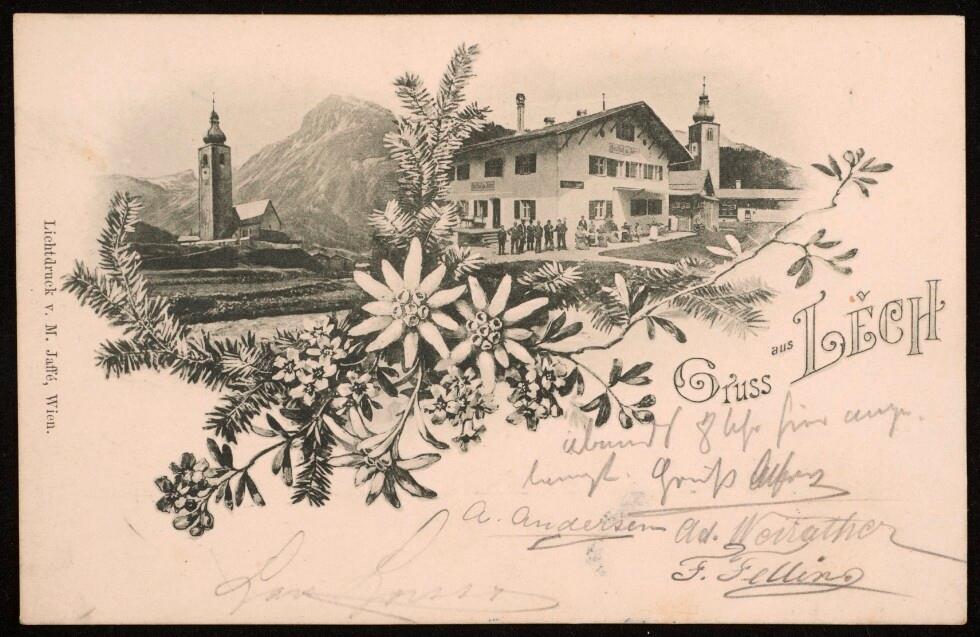 Lichtdruck v. M. Jaffé, Wien.
Gruss aus LĔCH
abends 8 Uhr hier ange-
langt. Gruß Alfons
A. Andersen Ad. Weirather
F. Felling